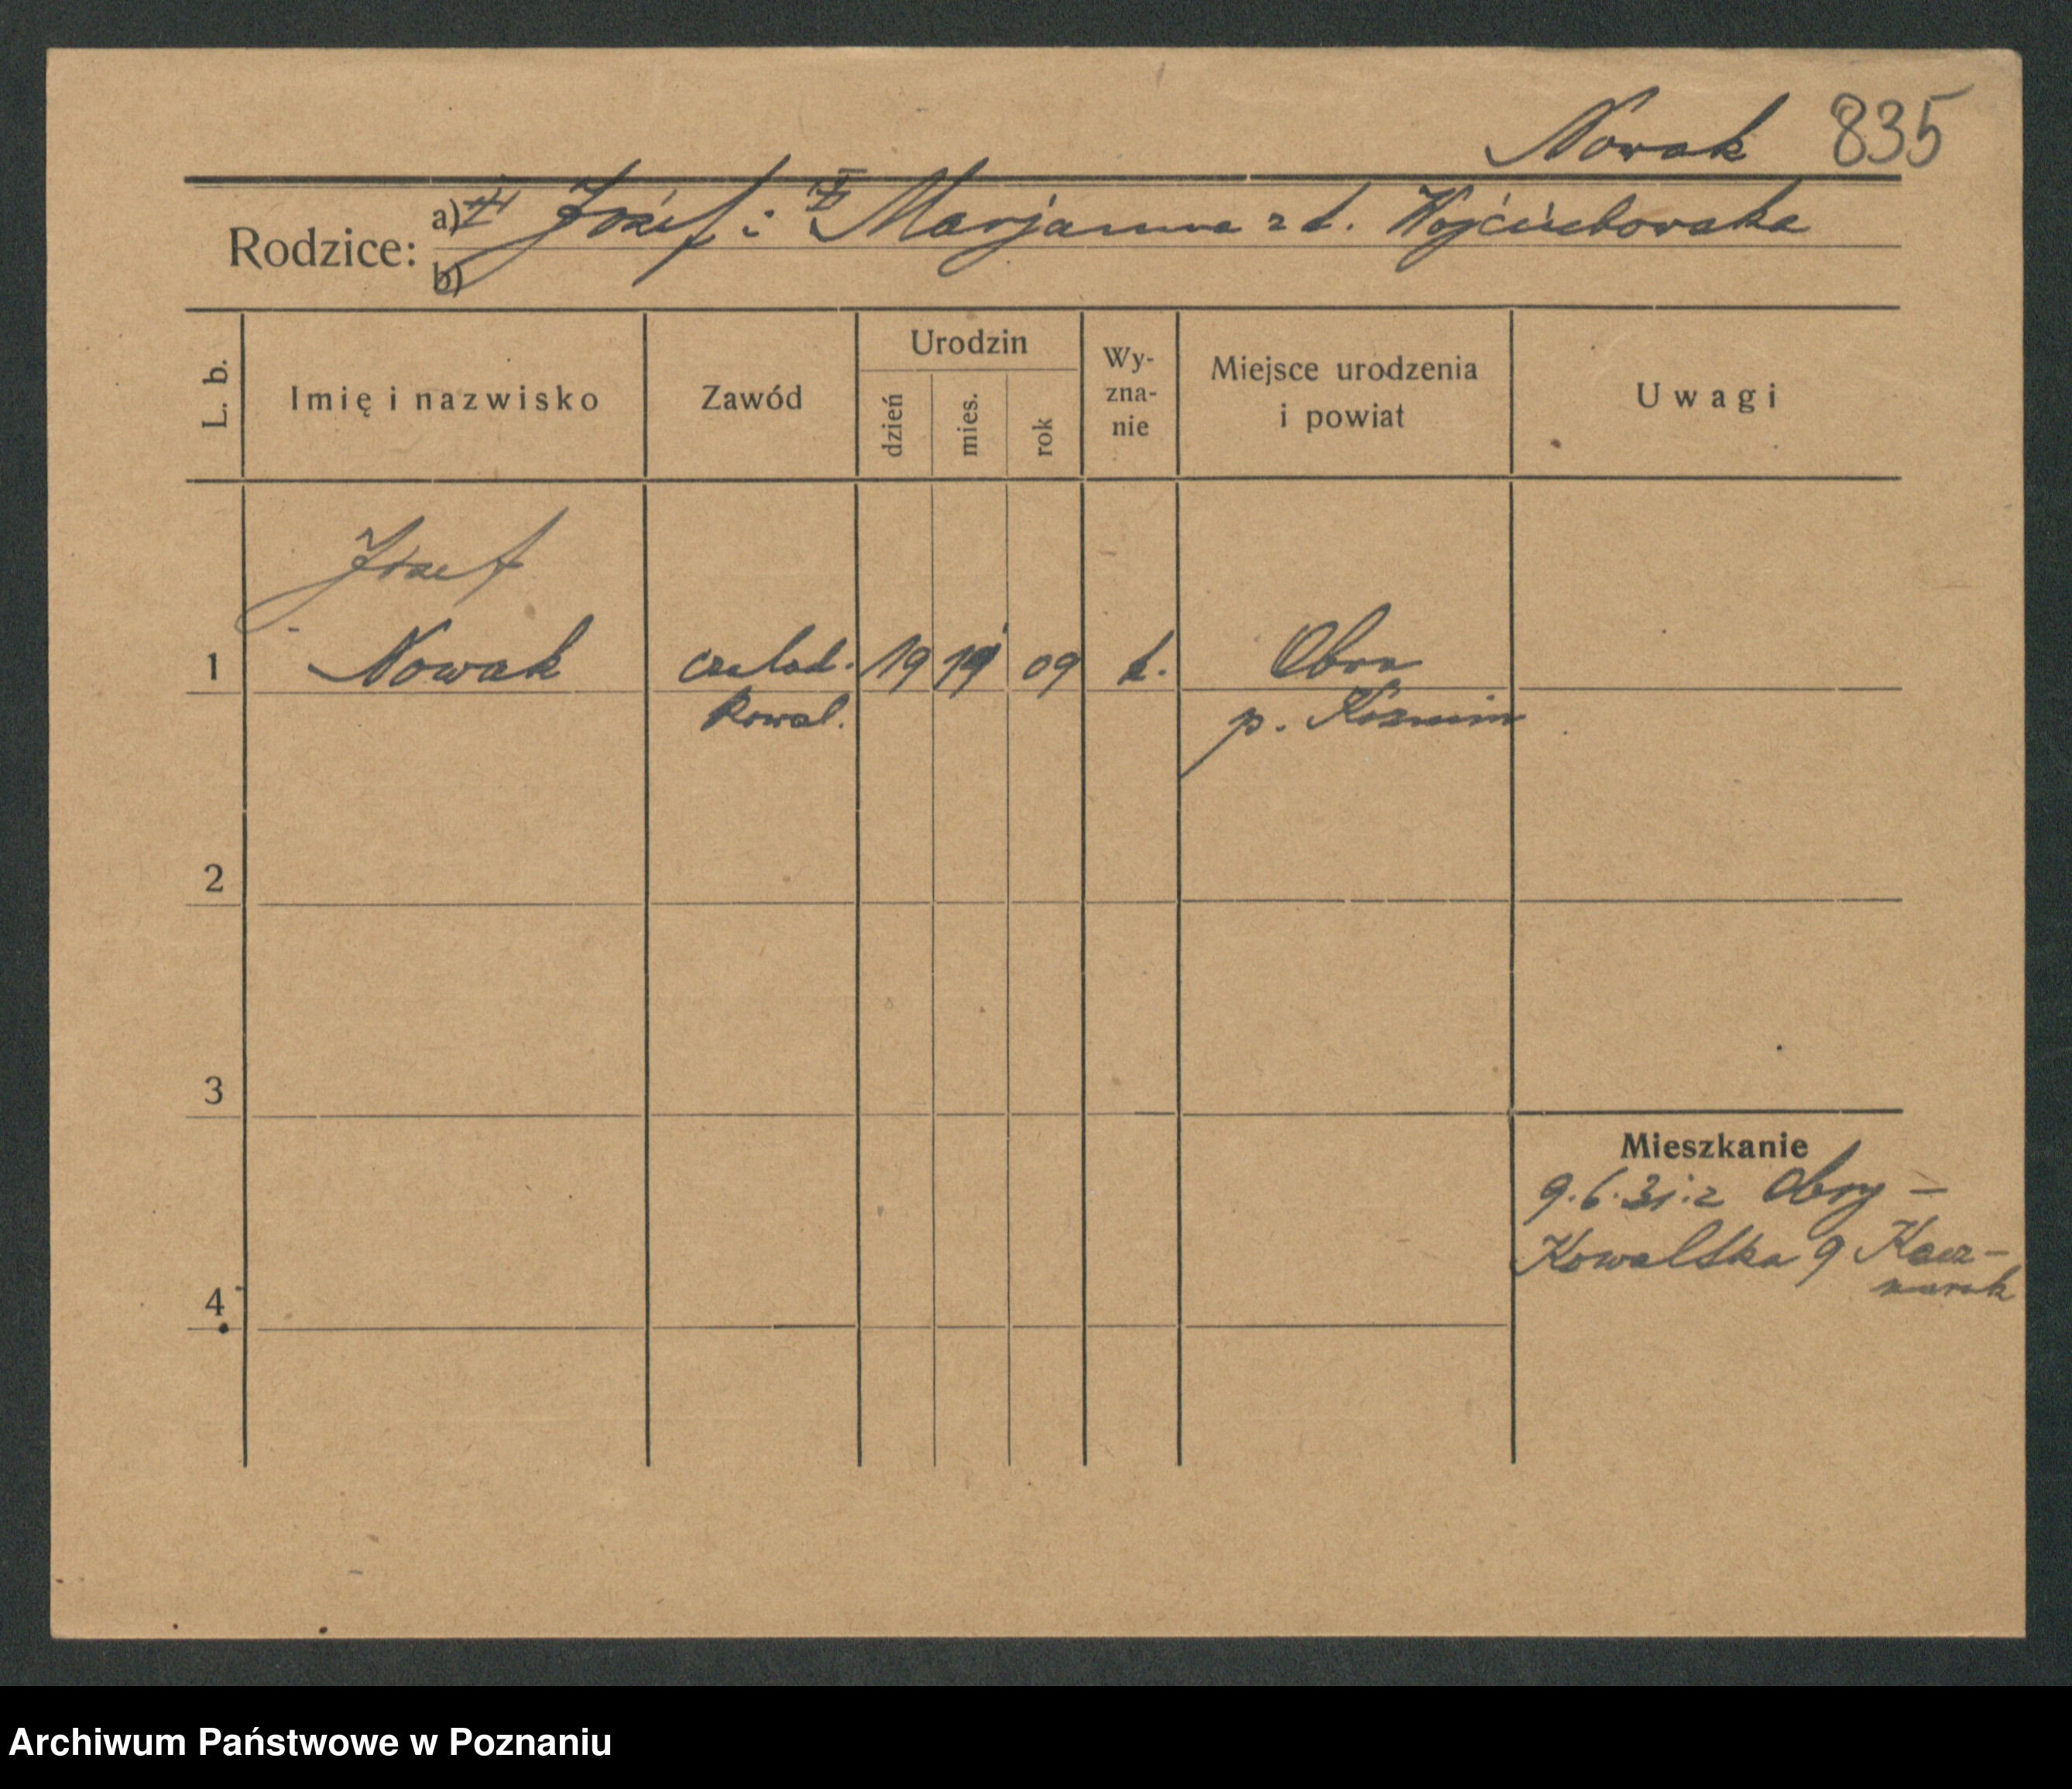 Nowak 835
Rodzice:
a) Józef i Marjanna z d. Wojciechowska
b)
L. b.
Imię i nazwisko
Zawód
Urodzin
dzień
mies.
rok
Wy-
zna-
nie
Miejsce urodzenia
i powiat
Uwagi
Józef
1 Nowak czelad. 19 09 k. Obra
kowal. p. Koźmin
2
3
Mieszkanie
9.6.31. z Obry –
Kowalska 9 Kacz-
marek
4
Archiwum Państwowe w Poznaniu